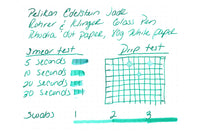 Pelikan Edelstein Jade
Rohrer & Klinger Glass Pen
Rhodia dot paper, 80g white paper
Smear test Drip test
5 seconds
10 seconds
20 seconds
30 seconds
Swabs 1 2 3